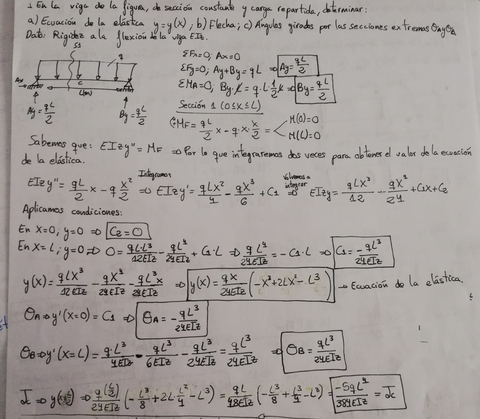 1. En la viga de la figura, de sección constante y carga repartida, determinar:
a) Ecuación de la elástica y=y(x), b) Flecha; c) Angulos girados por las secciones extremos θA y θB.
Dato: Rigidez a la flexión de la viga EIz.
q
Ax
L(m)
Ay=qL/2
By=qL/2
ΣFx=0; Ax=0
ΣFy=0; Ay+By=qL ⇒ Ay=qL/2
ΣMA=0; By·L=q·L·L/2 ⇒ By=qL/2
Sección 1 (0≤x≤L)
MF=qL/2 x - q·x·x/2 = M(0)=0
M(L)=0
Sabemos que: EIzy''=MF ⇒ Por lo que integraremos dos veces para obtener el valor de la ecuación
de la elástica.
Integramos
Volvemos a integrar
EIzy''=qL/2 x - q x²/2 ⇒ EIzy'=qLx²/4 - qx³/6 + C1 ⇒ EIzy=qLx³/12 - qx⁴/24 + C1x+C2
Aplicamos condiciones:
En x=0, y=0 ⇒ C2=0
En x=L, y=0 ⇒ 0=qL·L³/12EIz - qL⁴/24EIz + C1·L ⇒ qL⁴/24EIz = -C1·L ⇒ C1=-qL³/24EIz
y(x)=qLx³/12EIz - qx⁴/24EIz - qL³x/24EIz ⇒ y(x)=qx/24EIz (-x³+2Lx²-L³) → Ecuación de la elástica.
θA ⇒ y'(x=0)=C1 ⇒ θA=-qL³/24EIz
θB ⇒ y'(x=L)=q·L³/4EIz - qL³/6EIz - qL³/24EIz = qL³/24EIz ⇒ θB=qL³/24EIz